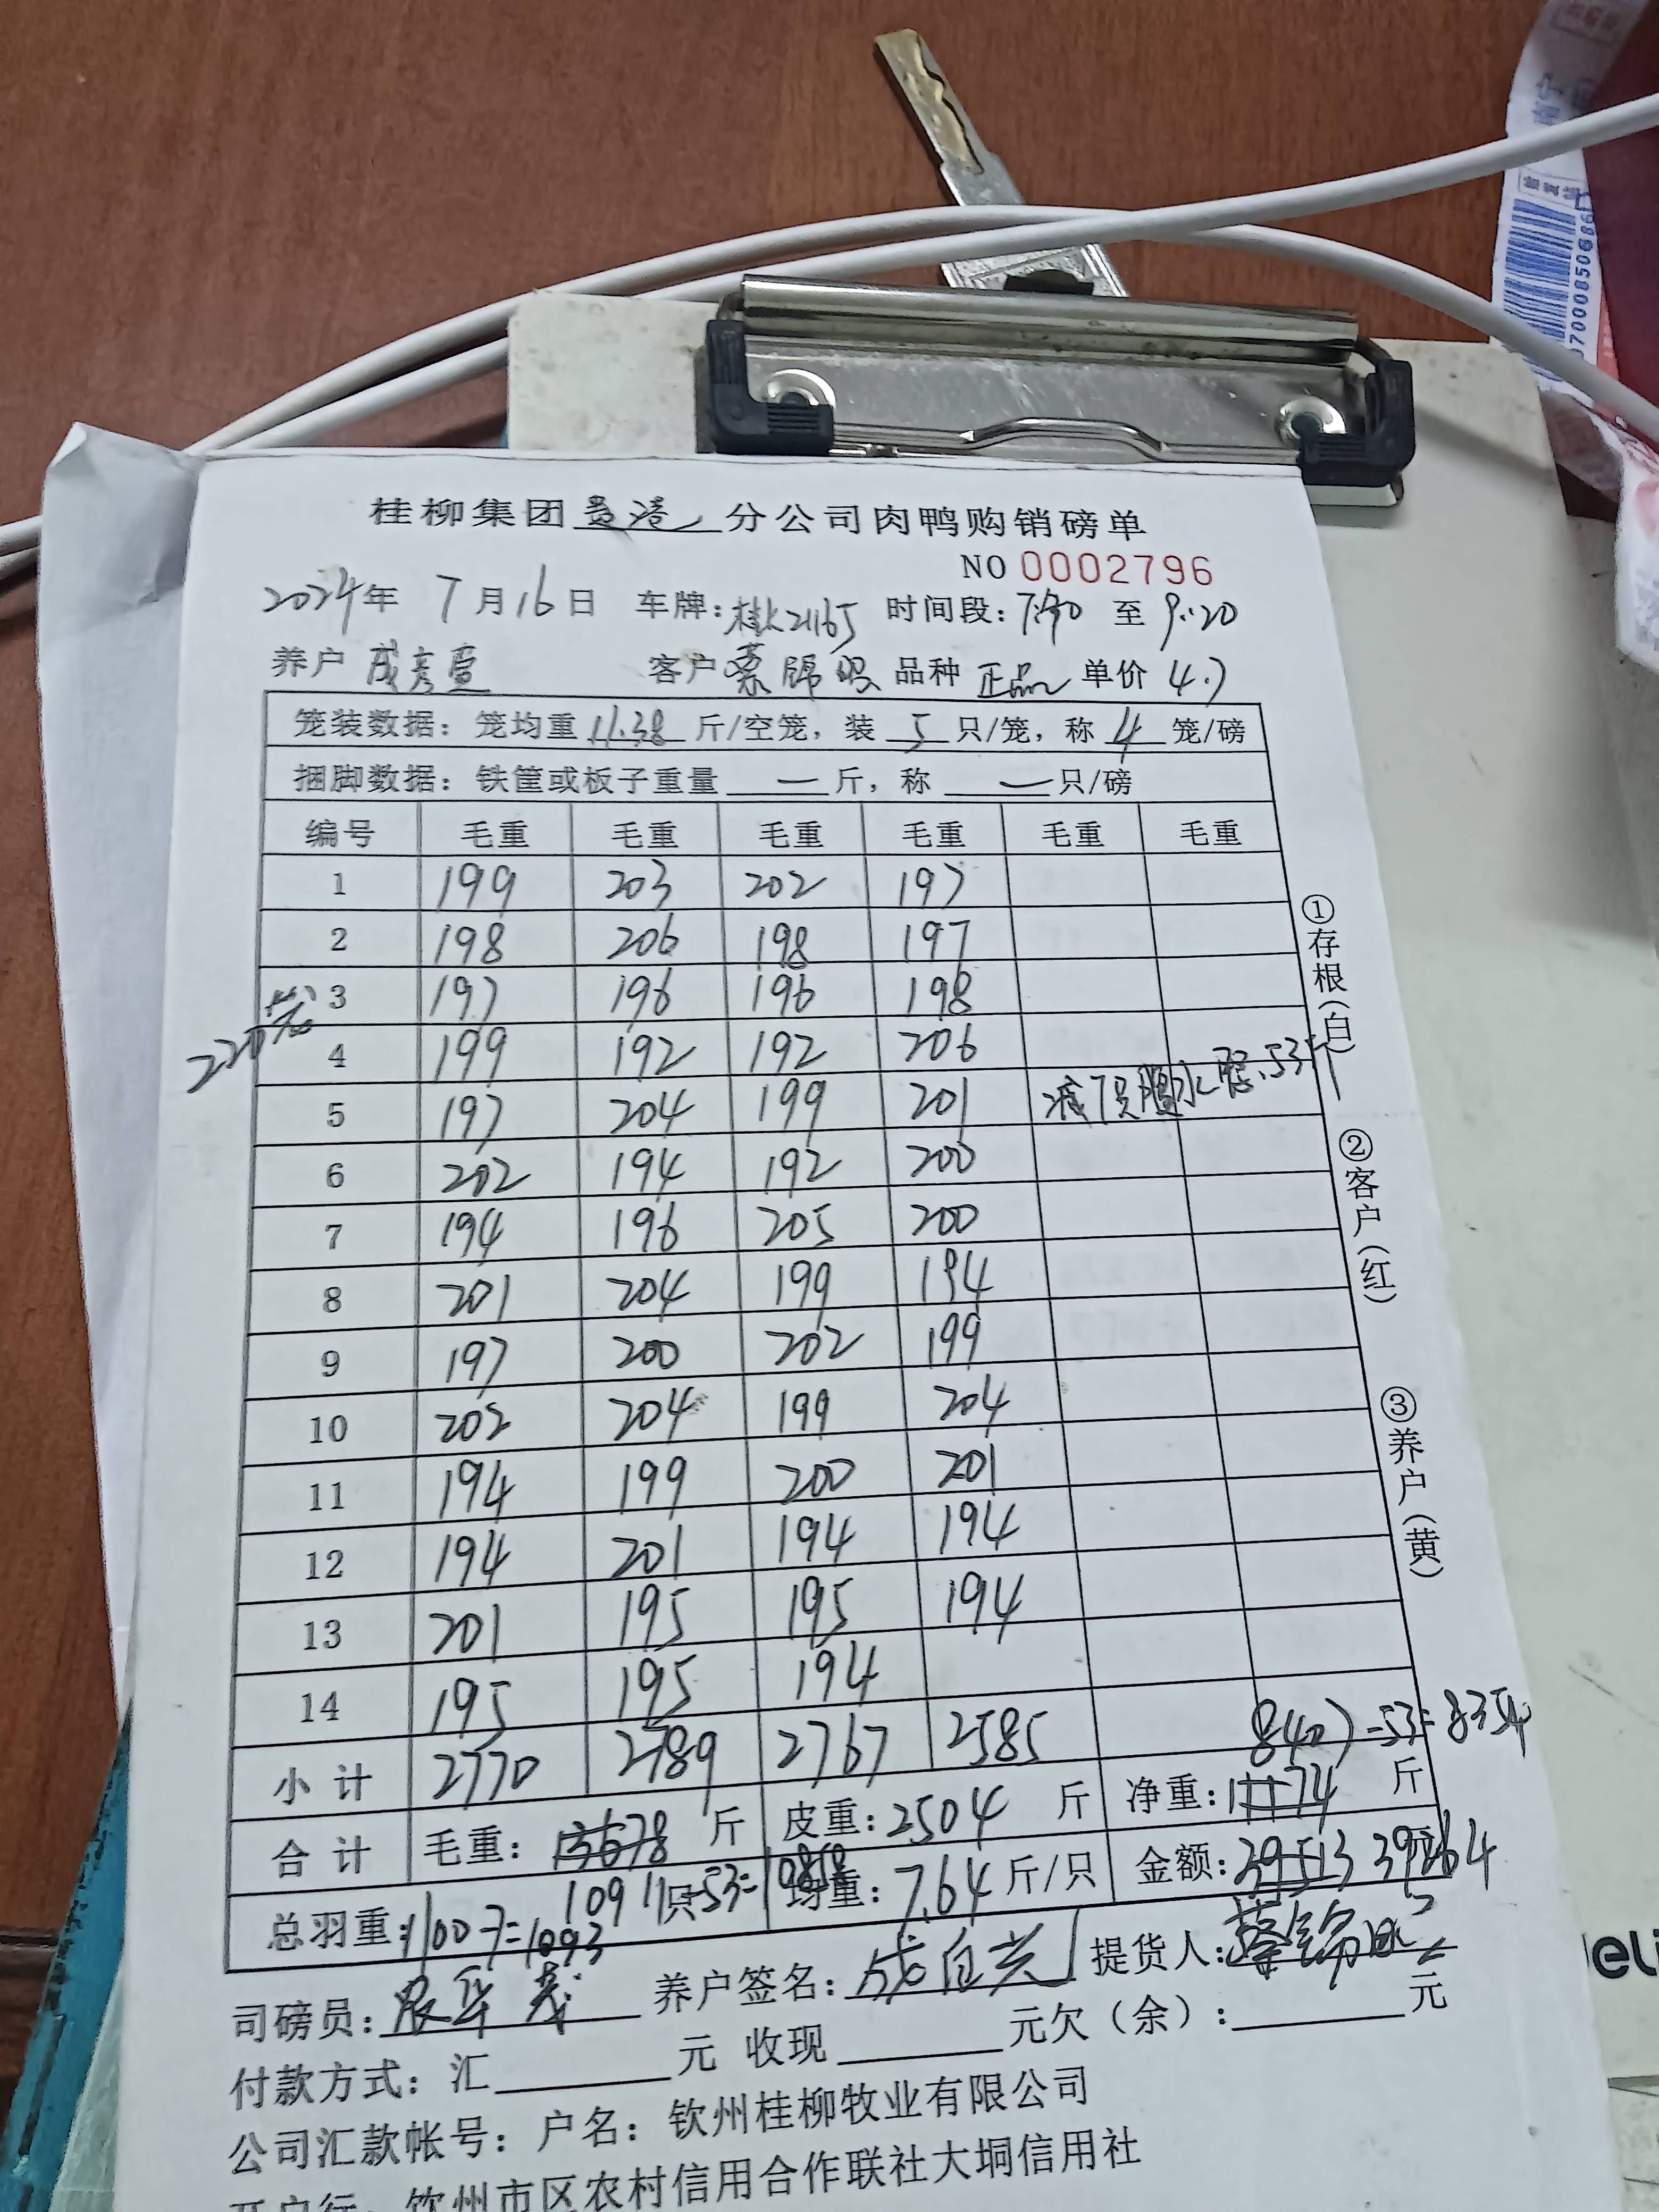 桂柳集团贵港分公司肉鸭购销磅单
NO 0002796
2024年 7月16日 车牌: 时间段: 至 9:20
养户 成彦萱 客户 品种 正品 单价 4.7
笼装数据: 笼均重 11.38 斤/空笼, 装 5 只/笼, 称 4 笼/磅
捆脚数据: 铁筐或板子重量 — 斤, 称 — 只/磅
编号 毛重 毛重 毛重 毛重 毛重 毛重
1 199 203 202 197
2 198 206 198 197
3 197 196 196 198
220笼
4 199 192 192 206
5 197 204 199 201 减7只 水 53斤
6 202 194 192 200
7 194 196 205 200
8 201 204 199 194
9 197 200 202 199
10 202 204 199 204
11 194 199 200 201
12 194 201 194 194
13 201 195 195 194
14 195 195 194
小计 2770 2789 2767 2585 8407-53=8354
合计 毛重: 斤 皮重:2504 斤 净重: 斤
10911-53=10858
总羽重:1100-7=1093 只 均重:7.64 斤/只 金额:39513 39264
司磅员: 养户签名: 提货人:
付款方式: 汇 元 收现 元欠(余): 元
公司汇款帐号: 户名: 钦州桂柳牧业有限公司
开户行: 钦州市区农村信用合作联社大垌信用社
①存根(白)
②客户(红)
③养户(黄)
南宁
deli